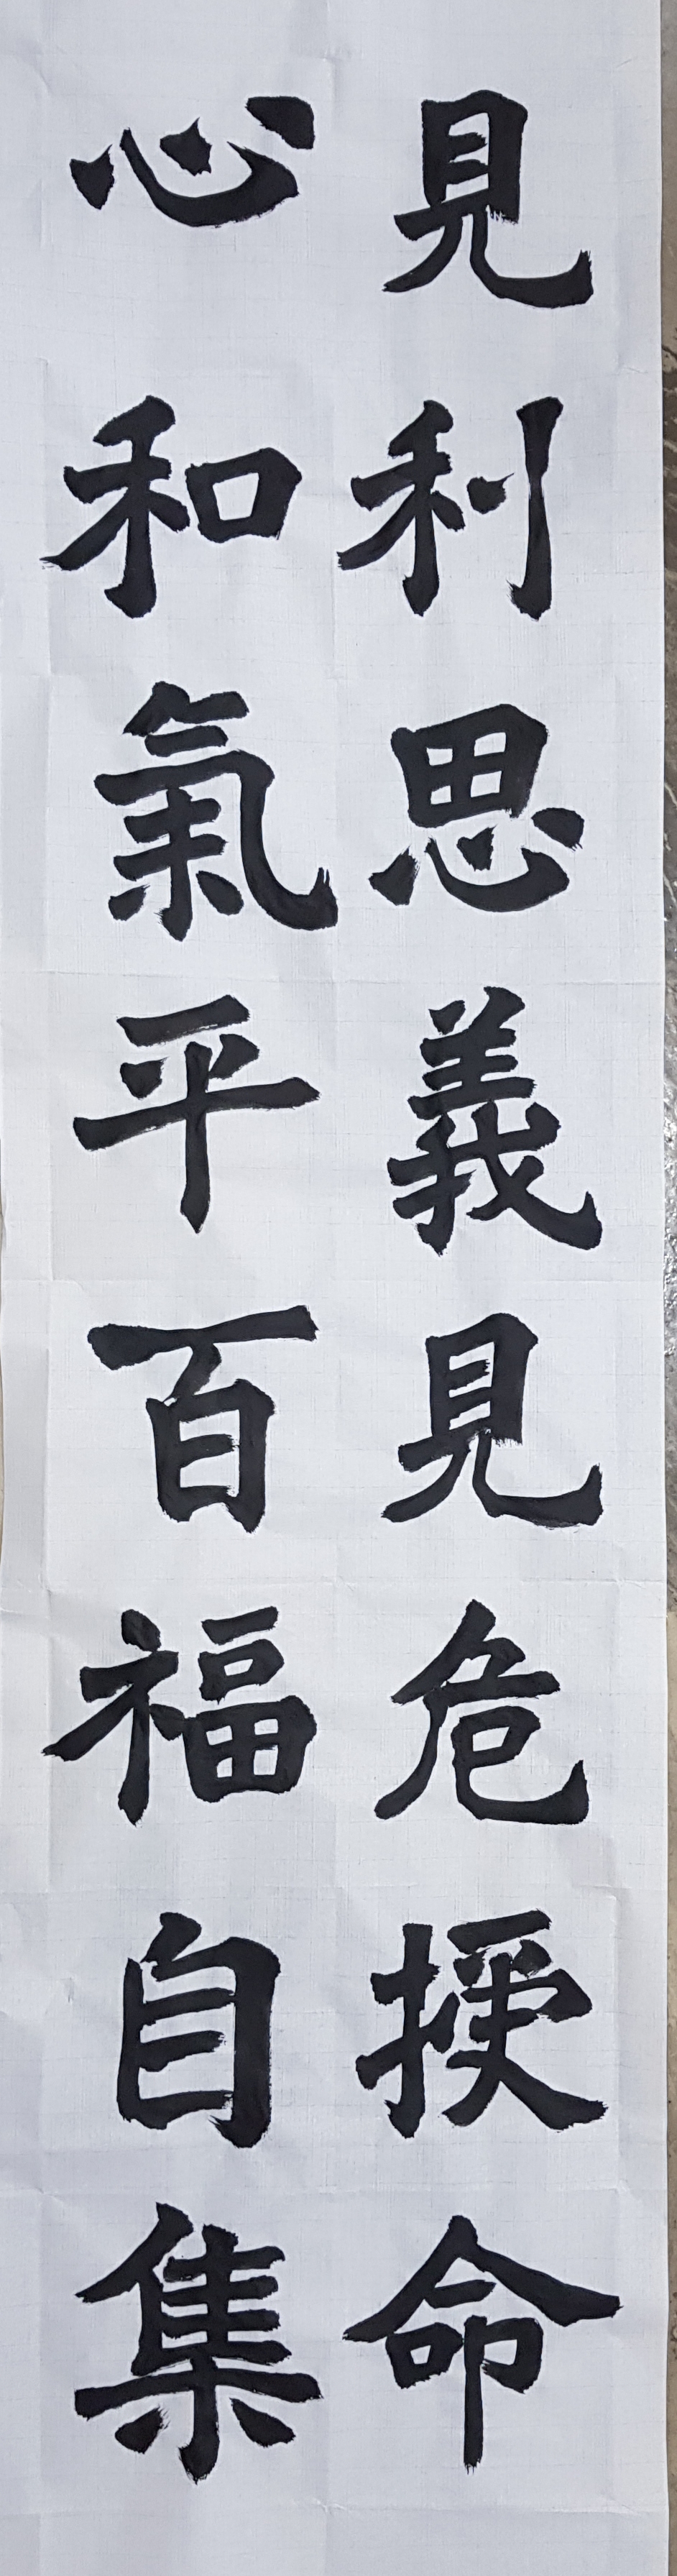 見利思義見危授命
心和氣平百福自集